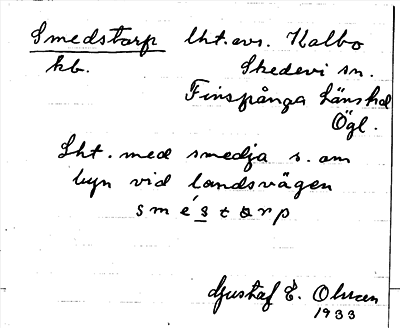 Smedstorp lht. avs. Kalbo
kb. Skedevi sn.
Finspånga länshd
Ögl.
Lht. med smedja s. om
byn vid landsvägen
sméstarp
Gustaf E. Olsson
1933